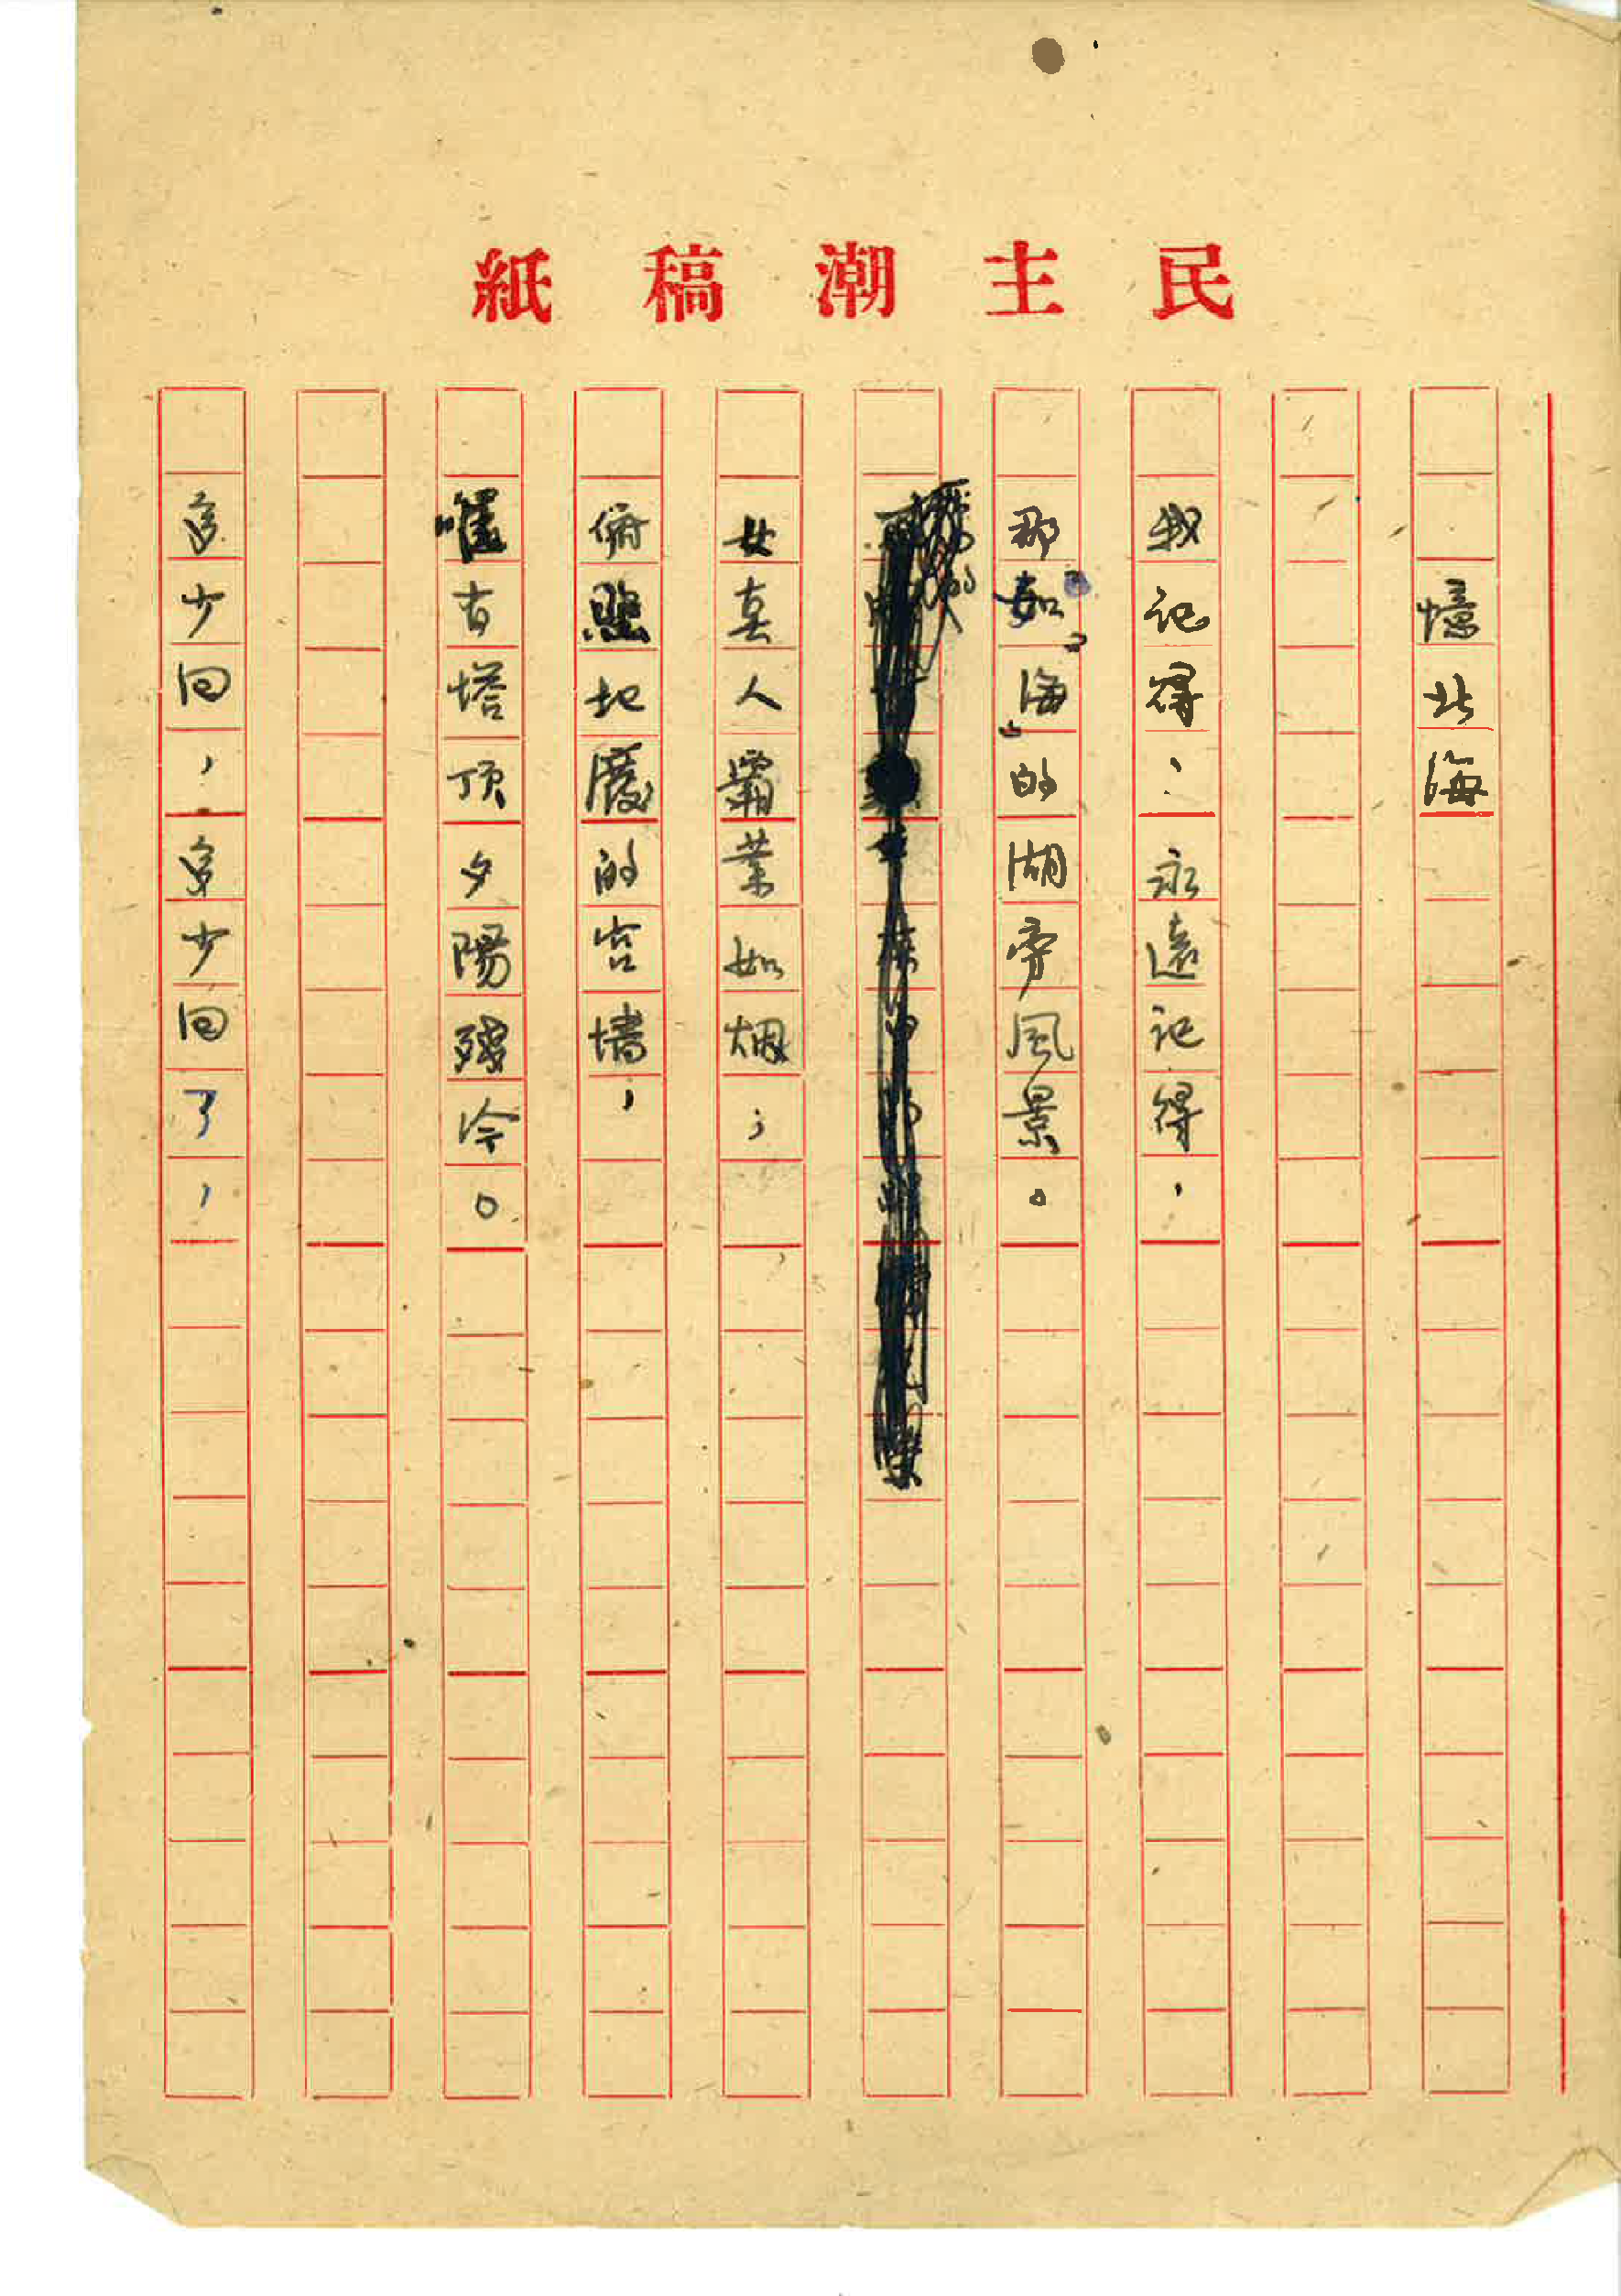 民主潮稿紙
憶北海
我記得;永遠記得,
那如「海」的湖旁風景。
女真人霸業如烟;
俯地廢的宮墙,
古塔頂夕陽殘冷。
多少回,多少回了,